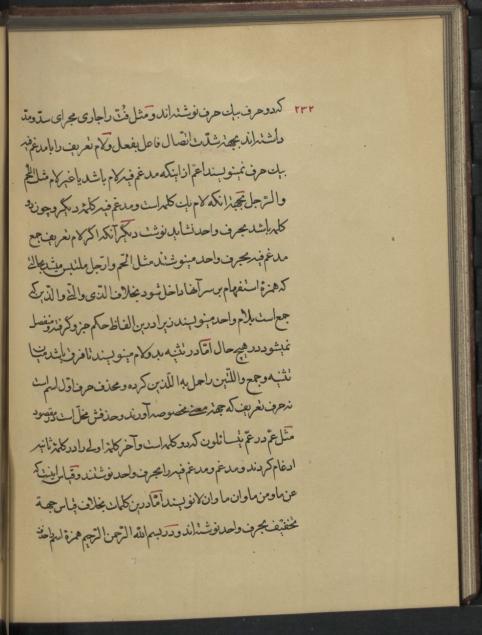 ۲۳۲ که دو حرف بیك حرف نوشته اند و مثل فُتُّ را جاری مجرای سدّ و مدّ
داشته اند بجهة شدّت اتّصال فاعل بفعل و لام تعریف را با مدغم فیه
بیك حرف نمینویسند اعمّ از اینکه مدغم فیه لام باشد یا غیر لام مثل اللّحم
والرّجل بجهة آنکه لام یك کلمه است و مدغم فیه کلمهٔ دیگر و چون دو
کلمه باشد بحرف واحد نشاید نوشت دیگر آنکه اگر لام تعریف جمع
مدغم فیه بحرف واحد مینوشتند مثل الّحم و ارّجل ملتبس میشد بحالتی
که همزهٔ استفهام بر سر آنها داخل شود بخلاف الّذی والّتی والّذین که
جمع است بلام واحد مینویسند زیرا در این الفاظ حکم جزو گرفته و منفصل
نمیشود در هیچ حال امّا در تثنیه بدو لام مینویسند تا فرق باشد میان
تثنیه و جمع واللّتین را حمل به اللّذین کرده و محذف حرف اوّل اسم است
نه حرف تعریف که جهة معنی مخصوصه آورند و حذفش مخلّ است در مقصود
مثل عمّ در عمّ یتسائلون که دو کلمه است و آخر کلمهٔ اولی را در کلمهٔ ثانیه
ادغام کردند و مدغم و مدغم فیه را بحرف واحد نوشتند و قیاس اینست که
عن ما و من ما و ان ما و ان لا نویسند امّا در این کلمات بخلاف قیاس جهة
تخفیف بحرف واحد نوشته اند و در بسم الله الرّحمن الرّحیم همزهٔ اسم